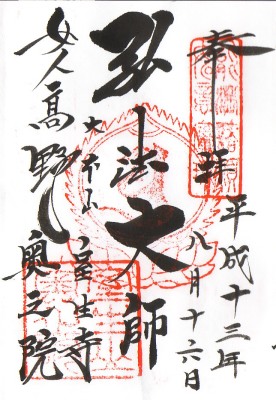 奉拝
平成十三年
八月十六日
弘法大師
大本山
室生寺
女人高野
奥之院